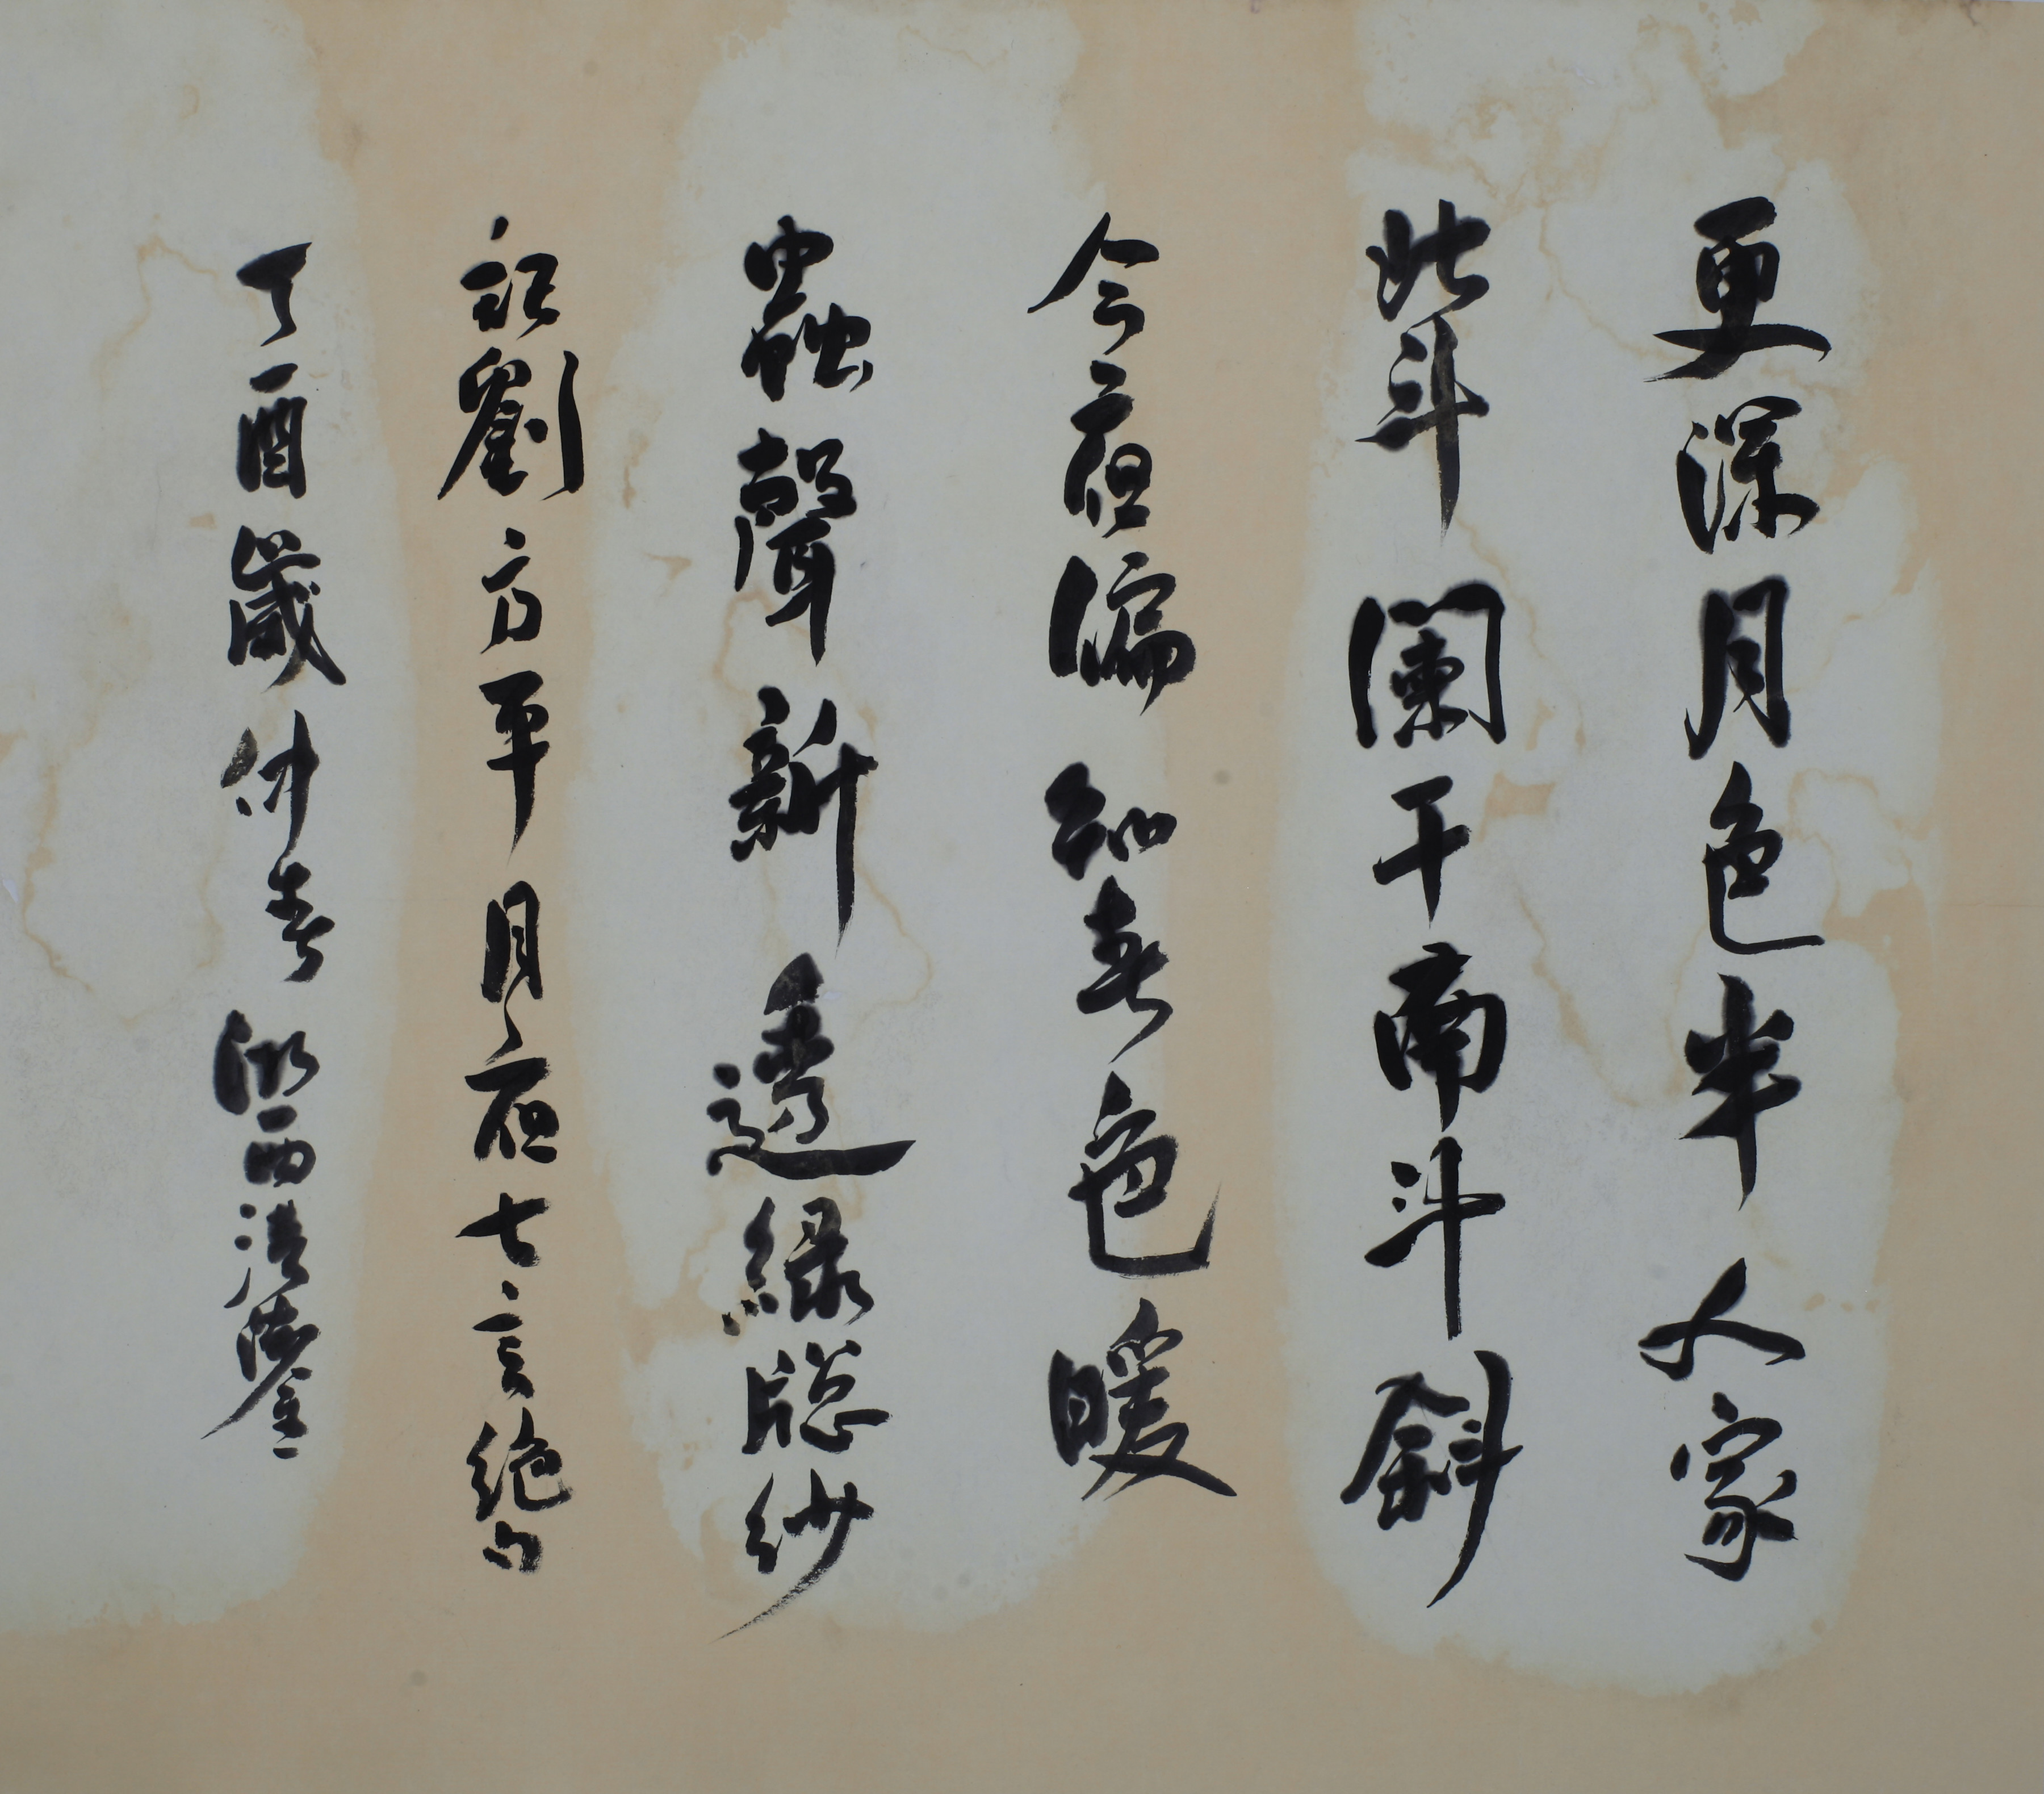 更深月色半人家
北斗闌干南斗斜
今夜偏知春色暖
蟲聲新透綠牕紗
記劉方平月夜七言絕句
丁酉歲仲春湖西